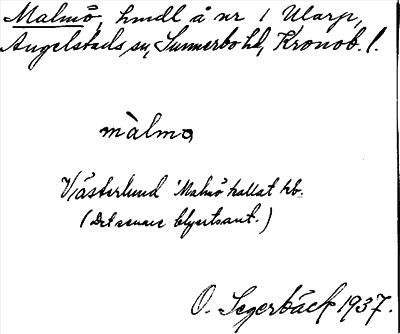 Malmö, hmdl å nr 1 Ularp,
Angelstads sn, Sunnerbo hd, Kronob. l.
màlmo
Västerlund 'Malmö kallat hb.
(Det senare blyertsant.)
O. Segerbäck 1937.